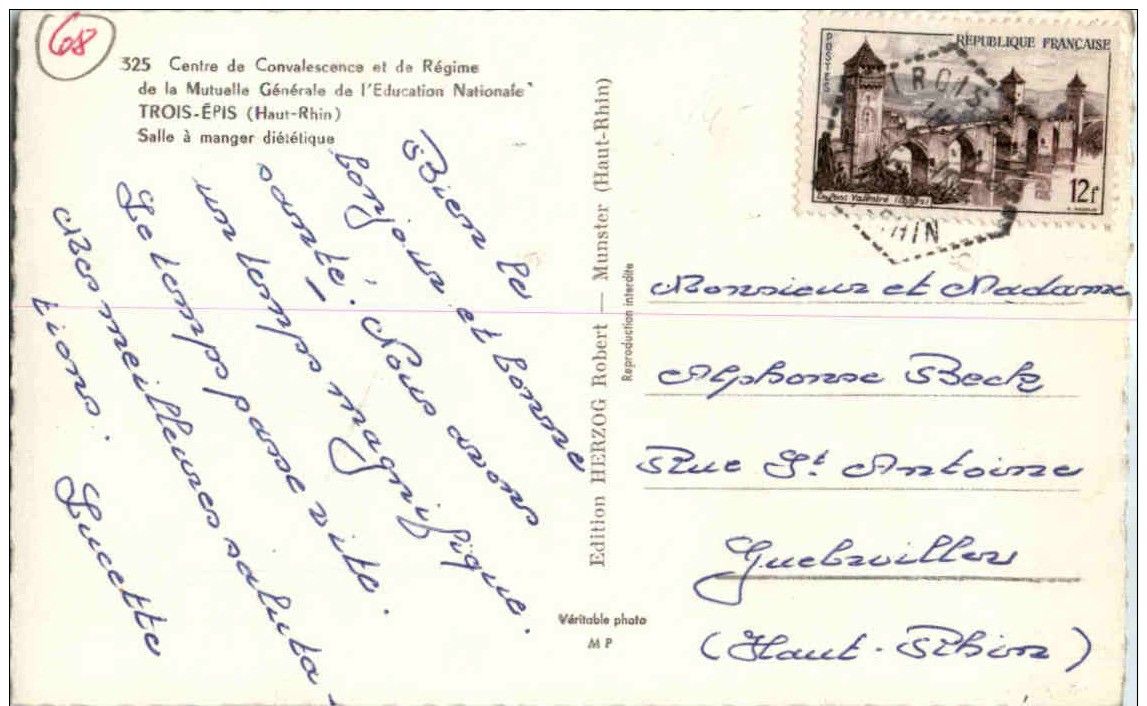 68
325 Centre de Convalescence et de Régime
de la Mutuelle Générale de l'Education Nationale
TROIS-ÉPIS (Haut-Rhin)
Salle à manger diététique
Bien le
bonjour et bonne
santé. Nous avons
un temps magnifique.
Le temps passe vite.
Mes meilleures saluta-
tions. Lucette
Edition HERZOG Robert — Munster (Haut-Rhin)
Reproduction interdite
Véritable photo
M P
POSTES
REPUBLIQUE FRANÇAISE
12f
TROIS
RHIN
Monsieur et Madame
Alphonse Beck
Rue St Antoine
Guebwiller
(Haut-Rhin)